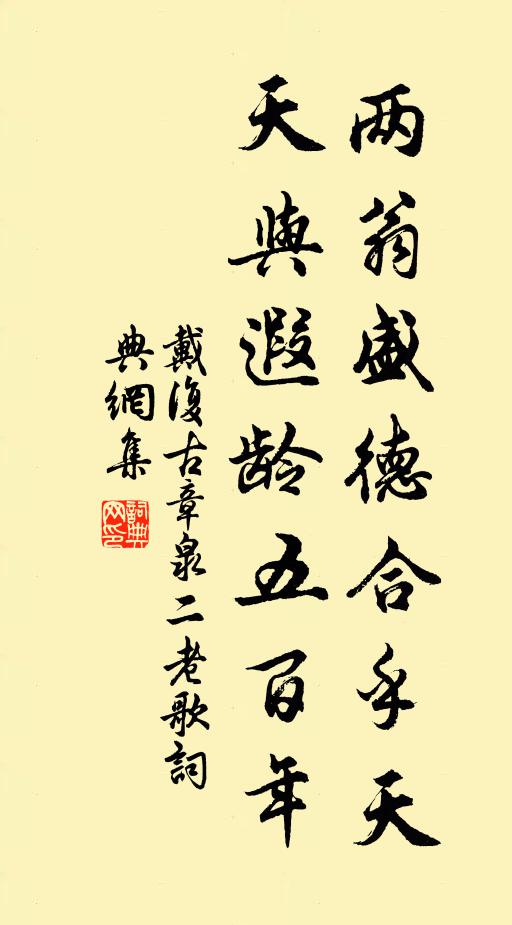 两翁盛德合乎天
天與遐龄五百年
戴復古章泉二老歌詞
典網集
詞典网印